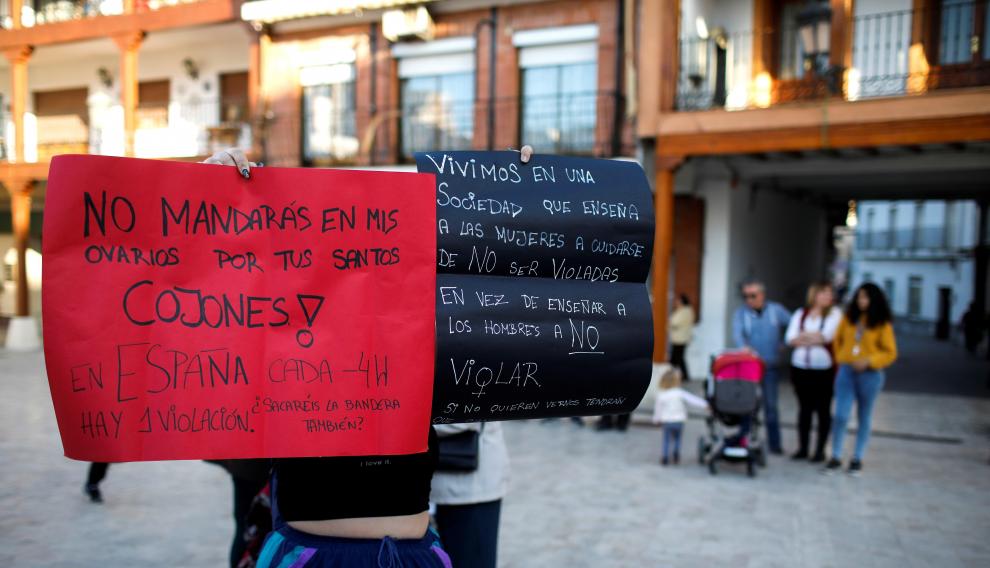 NO MANDARÁS EN MIS
OVARIOS POR TUS SANTOS
COJONES!
EN ESPAÑA CADA -4H
HAY 1 VIOLACIÓN. ¿SACARÉIS LA BANDERA
TAMBIÉN?
VIVIMOS EN UNA
SOCIEDAD QUE ENSEÑA
A LAS MUJERES A CUIDARSE
DE NO SER VIOLADAS
EN VEZ DE ENSEÑAR A
LOS HOMBRES A NO
VIOLAR
SI NO QUIEREN VERNOS TENDRÁN
QUE
I love it.